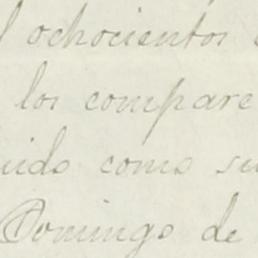 ochocientos
los compare
uido como su
Domingo de